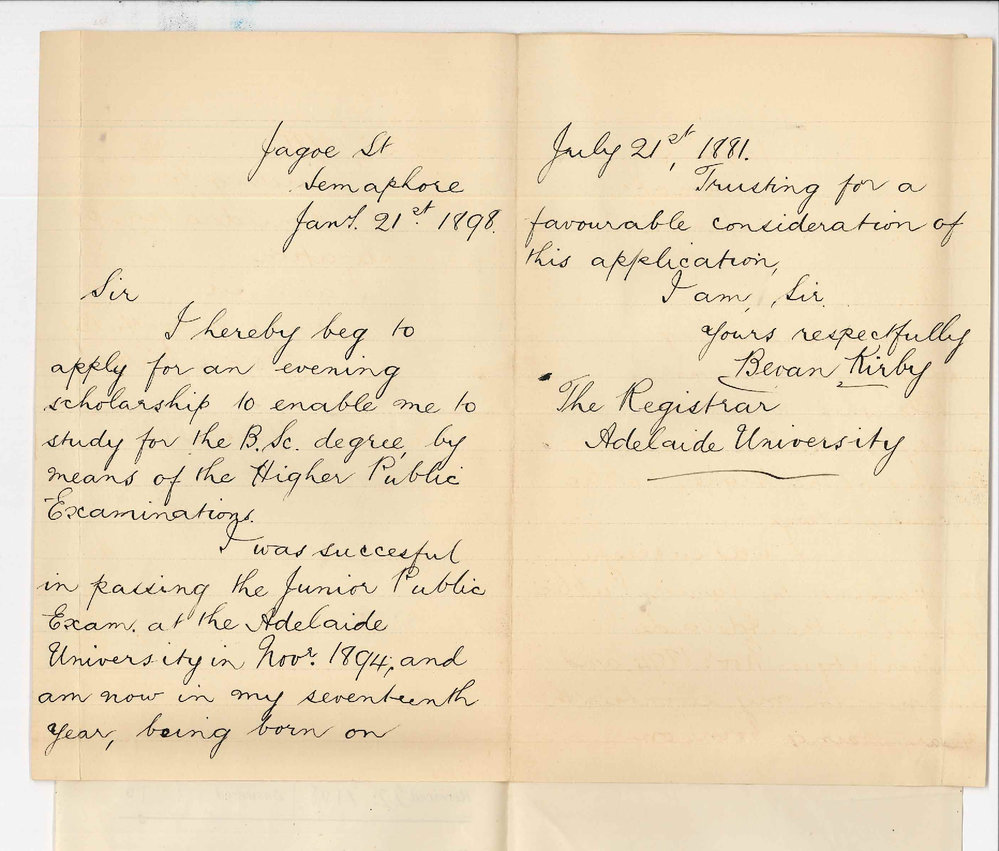 Jagoe St
Semaphore
Jany. 21st 1898.
Sir
I hereby beg to
apply for an evening
scholarship to enable me to
study for the B.Sc. degree, by
means of the Higher Public
Examinations.
I was succesful
in passing the Junior Public
Exam. at the Adelaide
University in Novr. 1894, and
am now in my seventeenth
year, being born on
July 21st, 1881.
Trusting for a
favourable consideration of
this application,
I am, Sir,
Yours respectfully
Bevan Kirby
The Registrar
Adelaide University